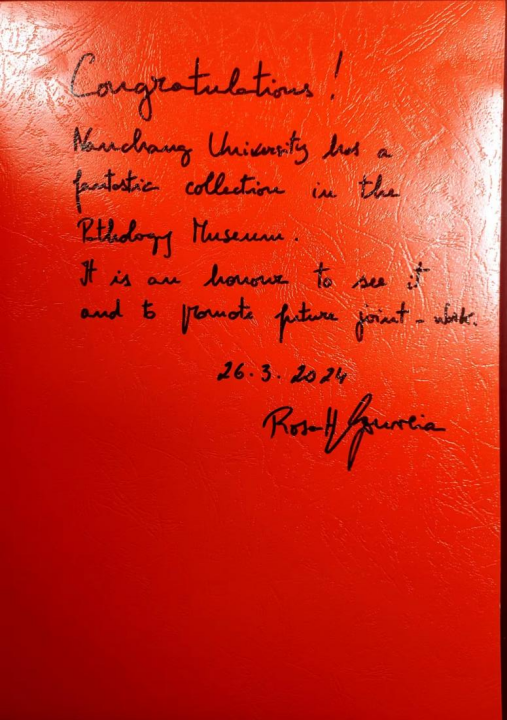 Congratulations!
Nanchang University has a
fantastic collection in the
Pathology Museum.
It is an honour to see it
and to promote future joint-work.
26.3.2024
Rosa H Gouveia